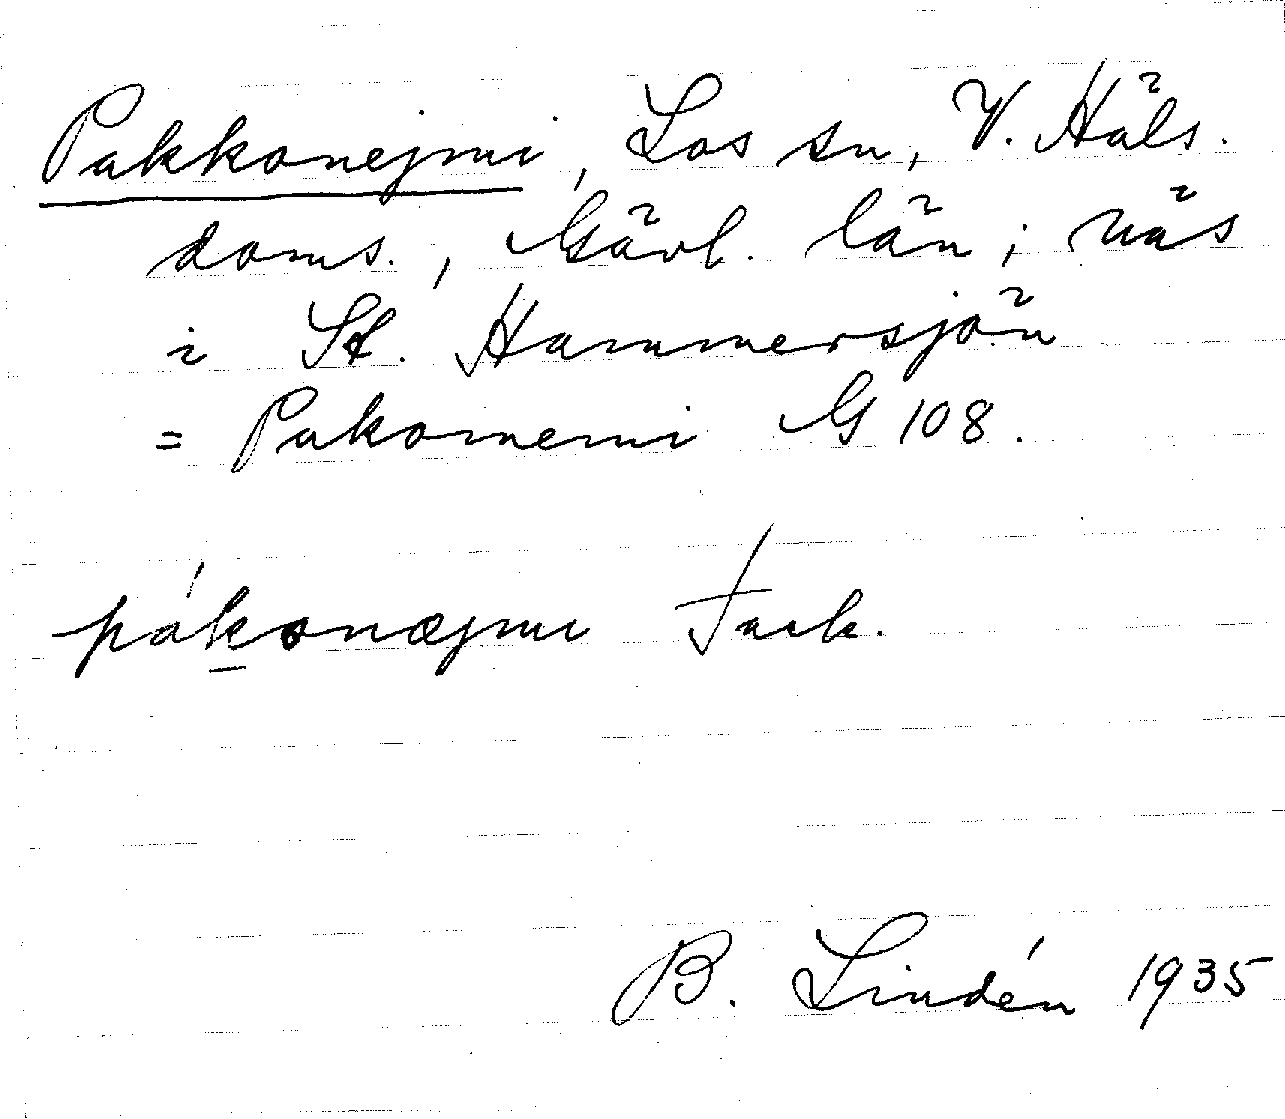 Pakkonejmi, Los sn, V. Häls.
doms., Gävl. län; näs
i St. Hammersjön
= Pakomemi G 108.
pákonæjmi
B. Lindén 1935